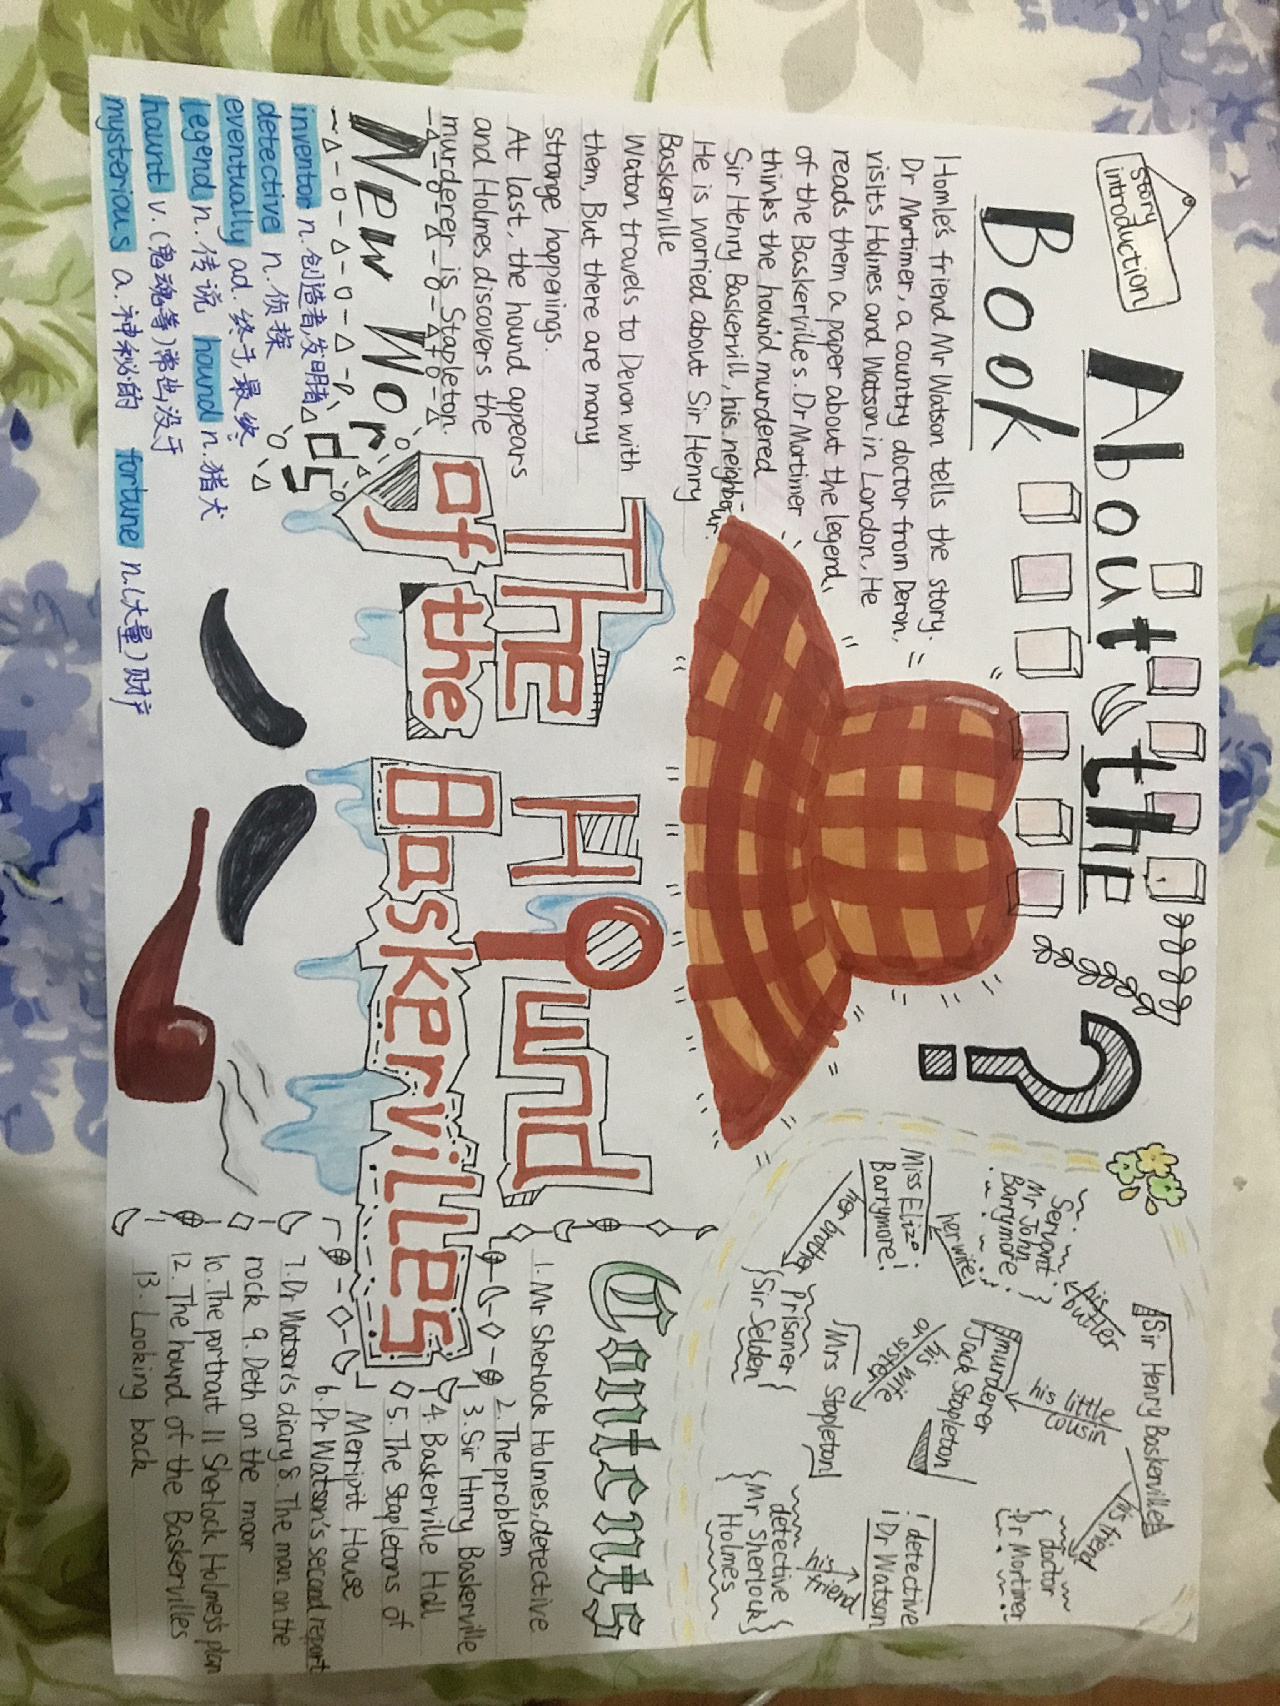 story
introduction
About the
Book ?
Homle's friend Mr Watson tells the story.
Dr Mortimer, a country doctor from Deron,
visits Holmes and Watson in London, He
reads them a paper about the legend,
of the Baskerville s. Dr Mortimer
thinks the hound murdered
Sir Henry Baskervill, his neighbour.
He is worried about Sir Henry
Baskerville
Waton travels to Devon with
them, But there are many
strange happenings.
At last, the hound appears
and Holmes discovers the
murderer is Stapleton.
New Words
inventor n. 创造者发明者
detective n. 侦探
eventually ad. 终于,最终
legend n. 传说 hound n. 猎犬
haunt v. (鬼魂等)常出没于
mysterious a. 神秘的 fortune n. (大量)财产
The Hound
of the Baskervilles
Sir Henry Baskerville
his butler
his little cousin
his friend
Servant
Mr John
Barrymore
her wife
Miss Eliza
Barrymore
her brother
Prisoner
Sir Selden
murderer
Jack Stapleton
his wife
or sister
Mrs Stapleton
doctor
Dr Mortimer
detective
Dr Watson
his friend
detective
Mr Sherlock
Holmes
Contents
1. Mr Sherlock Holmes, detective
2. The problem
3. Sir Hnry Baskerville
4. Baskerville Hall
5. The Stapletons of
Merripit House
6. Dr Watson's second report
7. Dr Watson's diary 8. The man on the
rock 9. Deth on the moor
10. The portrait 11 Sherlock Holmes's plan
12. The hound of the Baskervilles
13. Looking back